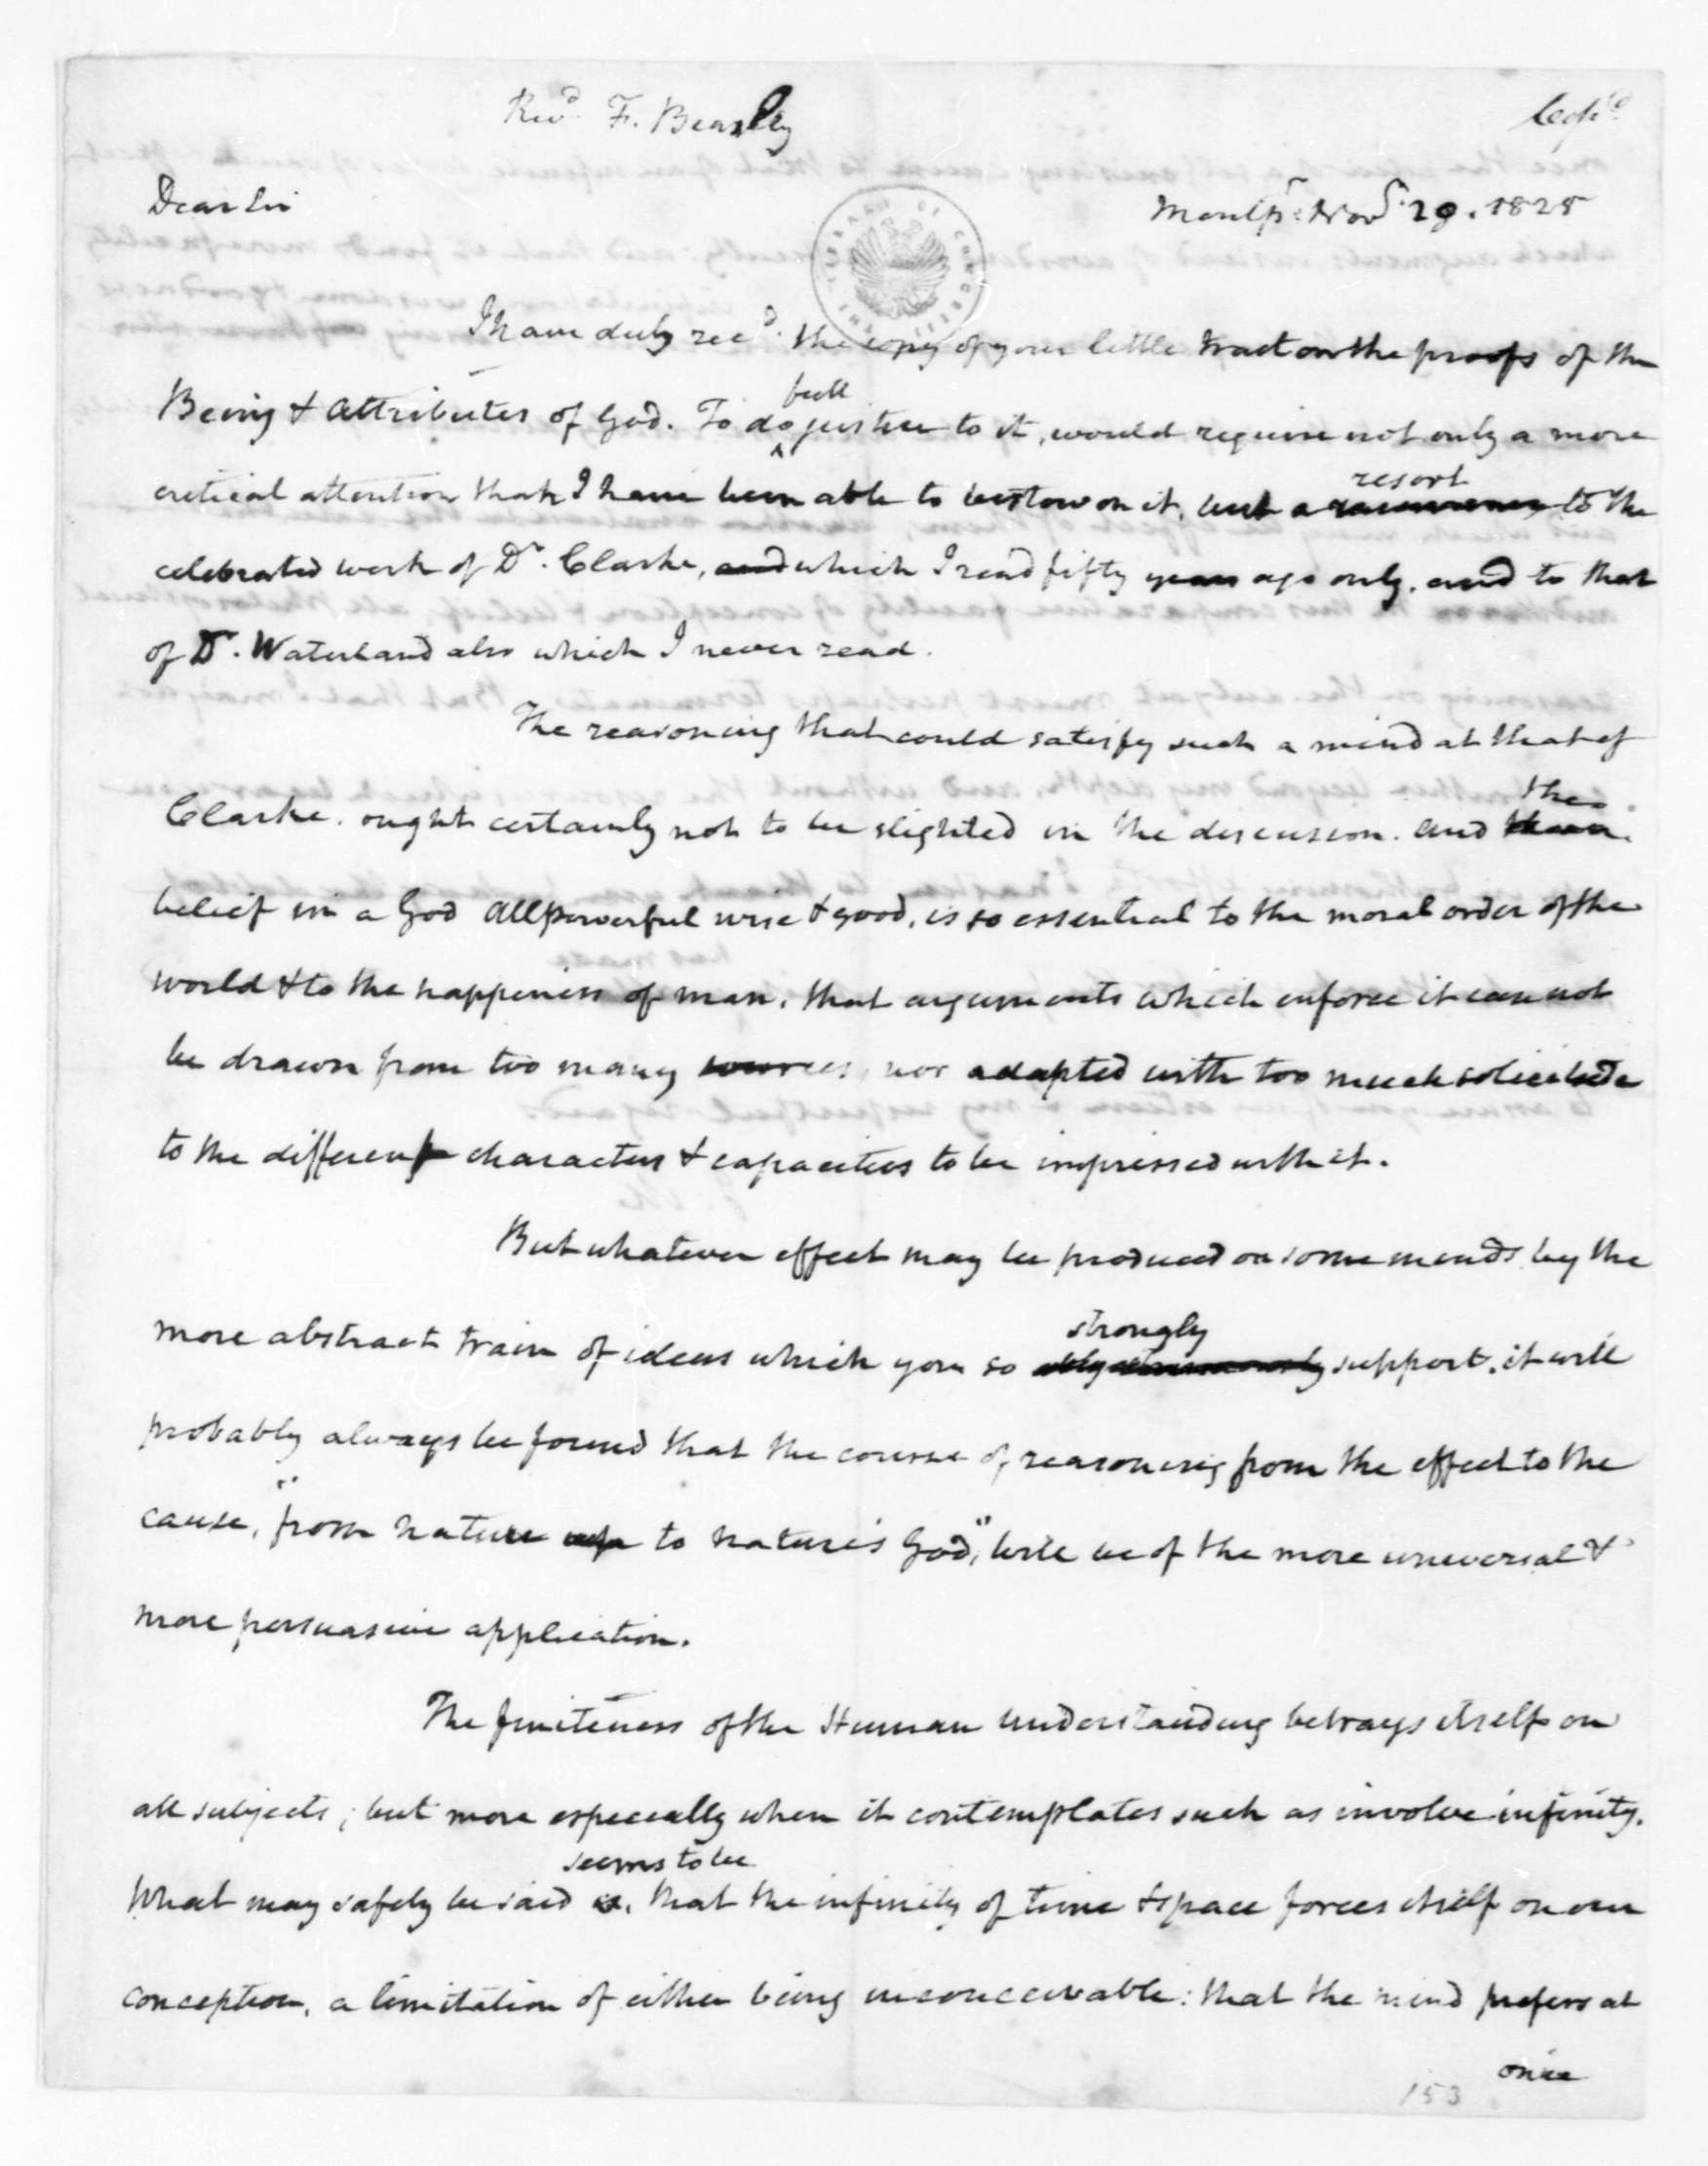 Revd. F. Beasley
Copd.
Dear Sir
Montpr. Novr. 20. 1825
I have duly recd. the copy of your little tract on the proofs of the
full
Being & Attributes of God. To do justice to it, would require not only a more
resort
critical attention than I have been able to bestow on it, but a to the
celebrated work of Dr. Clarke, and which I read fifty years ago only, and to that
of Dr. Waterland also which I never read.
The reasoning that could satisfy such a mind as that of
the
Clarke, ought certainly not to be slighted in the discussion. And
belief in a God All powerful wise & good, is so essential to the moral order of the
world & to the happiness of man, that arguments which enforce it cannot
be drawn from too many sources, nor adapted with too much solicitude
to the different characters & capacities to be impressed with it.
But whatever effect may be produced on some minds by the
strongly
more abstract train of ideas which you so support, it will
probably always be found that the course of reasoning from the effect to the
cause, "from nature to nature's God," will be of the more universal &
more persuasive application.
The finiteness of the Human understanding betrays itself on
all subjects; but more especially when it contemplates such as involve infinity.
seems to be
What may safely be said is, that the infinity of time & space forces itself on our
conception, a limitation of either being inconceivable: that the mind prefers at
once
153